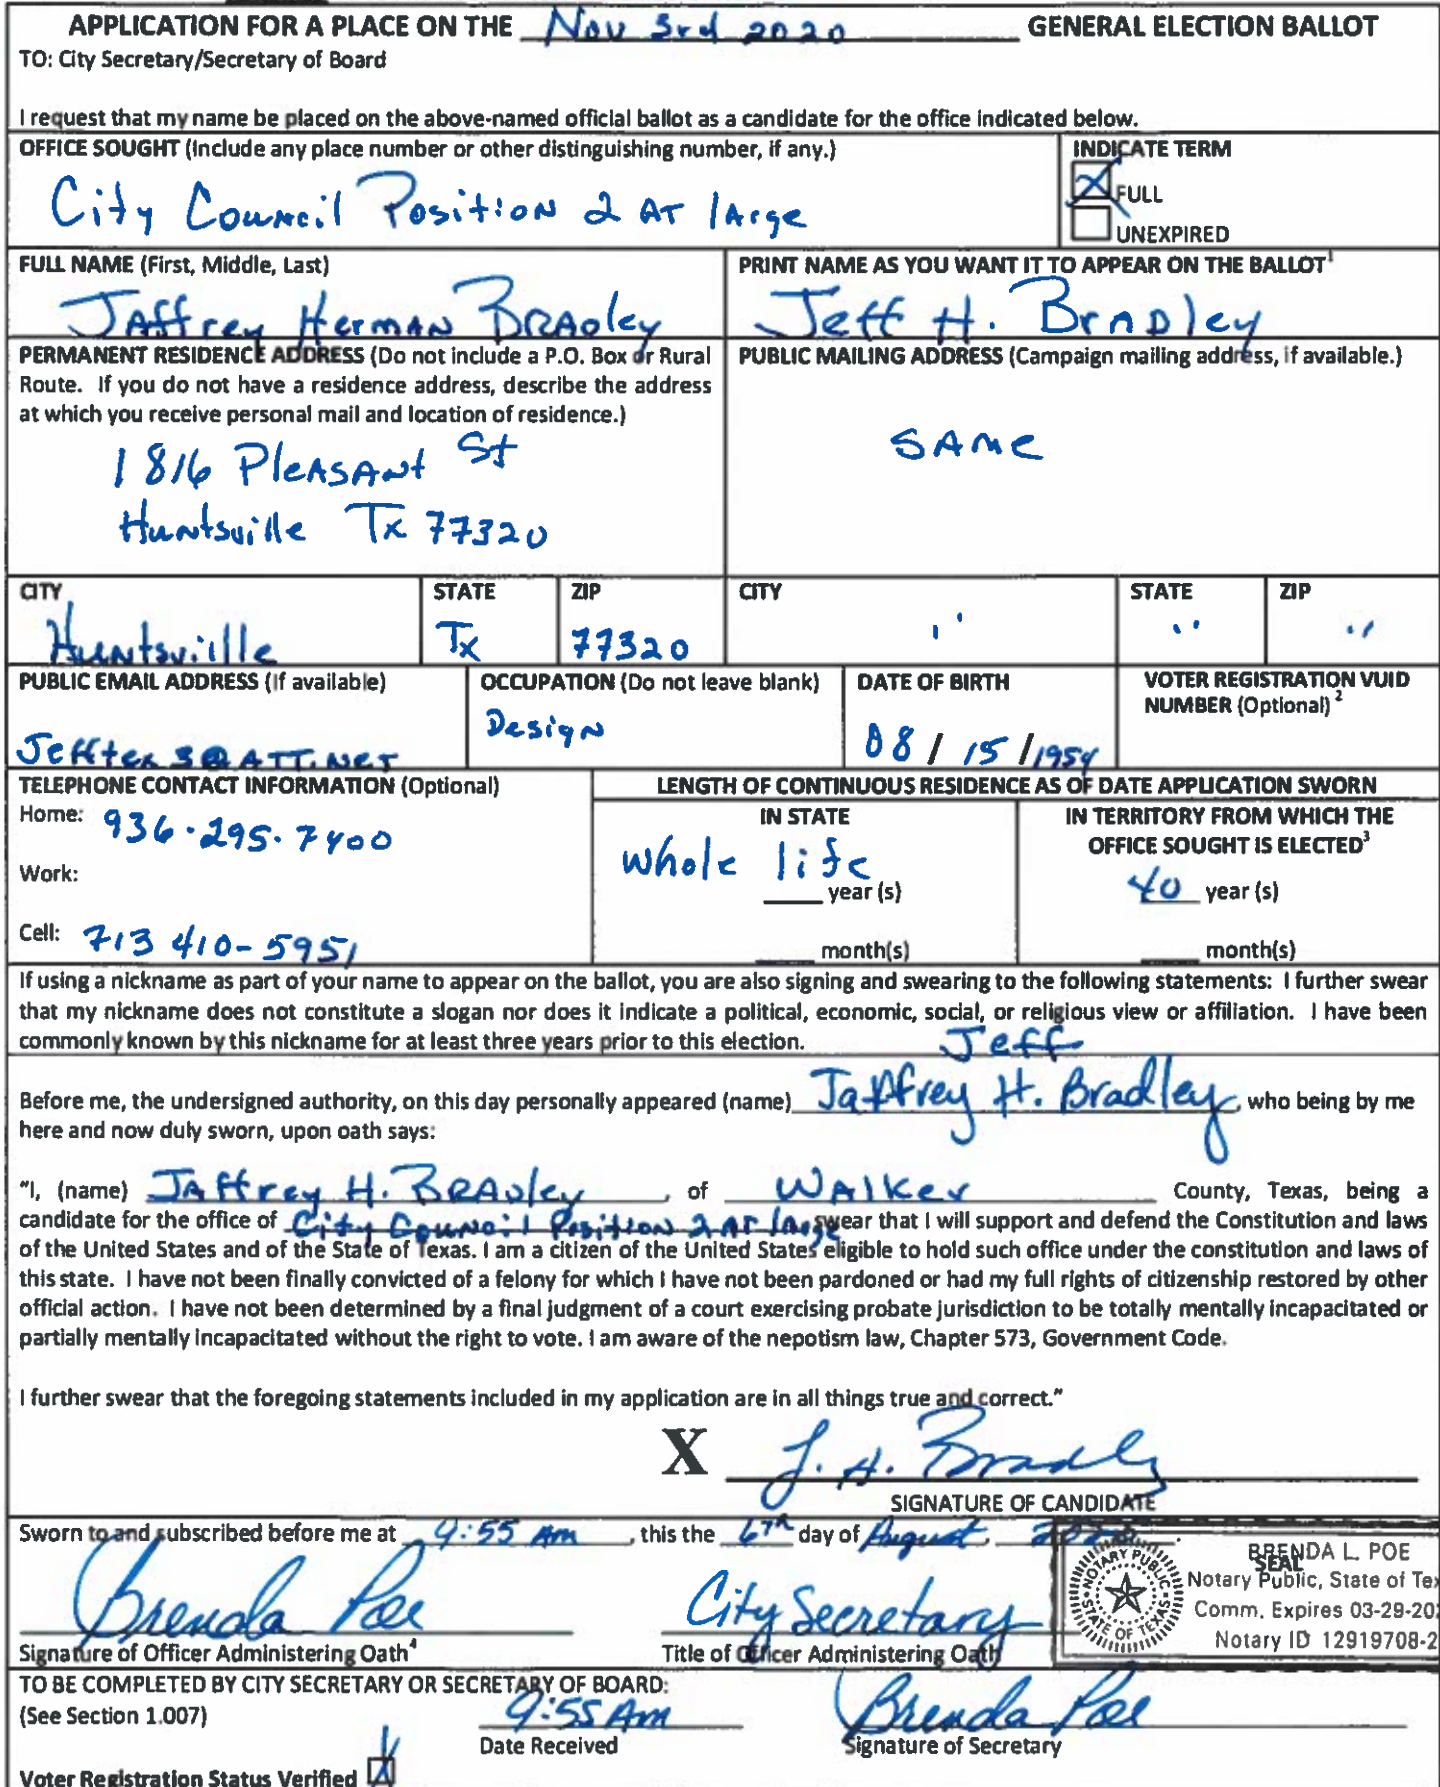 APPLICATION FOR A PLACE ON THE Nov 3rd 2020 GENERAL ELECTION BALLOT
TO: City Secretary/Secretary of Board
I request that my name be placed on the above-named official ballot as a candidate for the office indicated below.
OFFICE SOUGHT (Include any place number or other distinguishing number, if any.)
City Council Position 2 AT lArge
INDICATE TERM
X FULL
UNEXPIRED
FULL NAME (First, Middle, Last)
JAffrey HermAN BRADley
PRINT NAME AS YOU WANT IT TO APPEAR ON THE BALLOT¹
Jeff H. BrADley
PERMANENT RESIDENCE ADDRESS (Do not include a P.O. Box or Rural
Route. If you do not have a residence address, describe the address
at which you receive personal mail and location of residence.)
1816 PleASANt St
Huntsville Tx 77320
PUBLIC MAILING ADDRESS (Campaign mailing address, if available.)
SAMe
CITY
Huntsville
STATE
Tx
ZIP
77320
CITY
''
STATE
''
ZIP
''
PUBLIC EMAIL ADDRESS (If available)
Jefftex3@ATT.NET
OCCUPATION (Do not leave blank)
Design
DATE OF BIRTH
08 / 15 / 1954
VOTER REGISTRATION VUID
NUMBER (Optional) ²
TELEPHONE CONTACT INFORMATION (Optional)
Home: 936-295-7400
Work:
Cell: 713 410-5951
LENGTH OF CONTINUOUS RESIDENCE AS OF DATE APPLICATION SWORN
IN STATE
whole life
year (s)
month(s)
IN TERRITORY FROM WHICH THE
OFFICE SOUGHT IS ELECTED³
40 year (s)
month(s)
If using a nickname as part of your name to appear on the ballot, you are also signing and swearing to the following statements: I further swear
that my nickname does not constitute a slogan nor does it indicate a political, economic, social, or religious view or affiliation. I have been
commonly known by this nickname for at least three years prior to this election.
Jeff
Before me, the undersigned authority, on this day personally appeared (name) Jaffrey H. Bradley, who being by me
here and now duly sworn, upon oath says:
"I, (name) JAffrey H. BRADley, of WAlker County, Texas, being a
candidate for the office of City Council Position 2 AT large swear that I will support and defend the Constitution and laws
of the United States and of the State of Texas. I am a citizen of the United States eligible to hold such office under the constitution and laws of
this state. I have not been finally convicted of a felony for which I have not been pardoned or had my full rights of citizenship restored by other
official action. I have not been determined by a final judgment of a court exercising probate jurisdiction to be totally mentally incapacitated or
partially mentally incapacitated without the right to vote. I am aware of the nepotism law, Chapter 573, Government Code.
I further swear that the foregoing statements included in my application are in all things true and correct."
X J. H. Bradley
SIGNATURE OF CANDIDATE
Sworn to and subscribed before me at 9:55 Am, this the 6th day of August,
Brenda Poe
Signature of Officer Administering Oath⁴
City Secretary
Title of Officer Administering Oath
SEAL
NOTARY PUBLIC STATE OF TEXAS
BRENDA L. POE
Notary Public, State of Tex
Comm. Expires 03-29-202
Notary ID 12919708-2
TO BE COMPLETED BY CITY SECRETARY OR SECRETARY OF BOARD:
(See Section 1.007)
9:55 Am
Date Received
Brenda Poe
Signature of Secretary
Voter Registration Status Verified